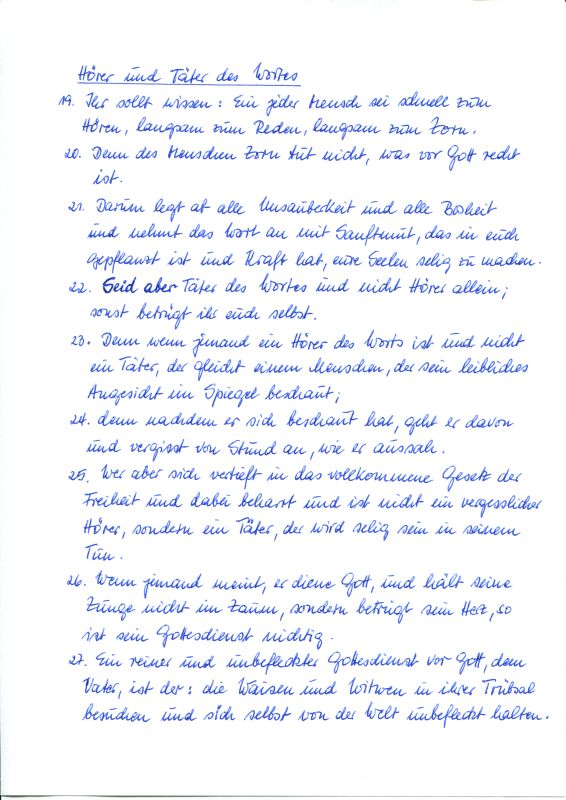 Hörer und Täter des Wortes
19. Ihr sollt wissen: Ein jeder Mensch sei schnell zum
Hören, langsam zum Reden, langsam zum Zorn.
20. Denn des Menschen Zorn tut nicht, was vor Gott recht
ist.
21. Darum legt ab alle Unsauberkeit und alle Bosheit
und nehmt das Wort an mit Sanftmut, das in euch
gepflanzt ist und Kraft hat, eure Seelen selig zu machen.
22. Seid aber Täter des Wortes und nicht Hörer allein;
sonst betrügt ihr euch selbst.
23. Denn wenn jemand ein Hörer des Worts ist und nicht
ein Täter, der gleicht einem Menschen, der sein leibliches
Angesicht im Spiegel beschaut;
24. denn nachdem er sich beschaut hat, geht er davon
und vergisst von Stund an, wie er aussah.
25. Wer aber sich vertieft in das vollkommene Gesetz der
Freiheit und dabei beharrt und ist nicht ein vergesslicher
Hörer, sondern ein Täter, der wird selig sein in seinem
Tun.
26. Wenn jemand meint, er diene Gott, und hält seine
Zunge nicht im Zaum, sondern betrügt sein Herz, so
ist sein Gottesdienst nichtig.
27. Ein reiner und unbefleckter Gottesdienst vor Gott, dem
Vater, ist der: die Waisen und Witwen in ihrer Trübsal
besuchen und sich selbst von der Welt unbefleckt halten.